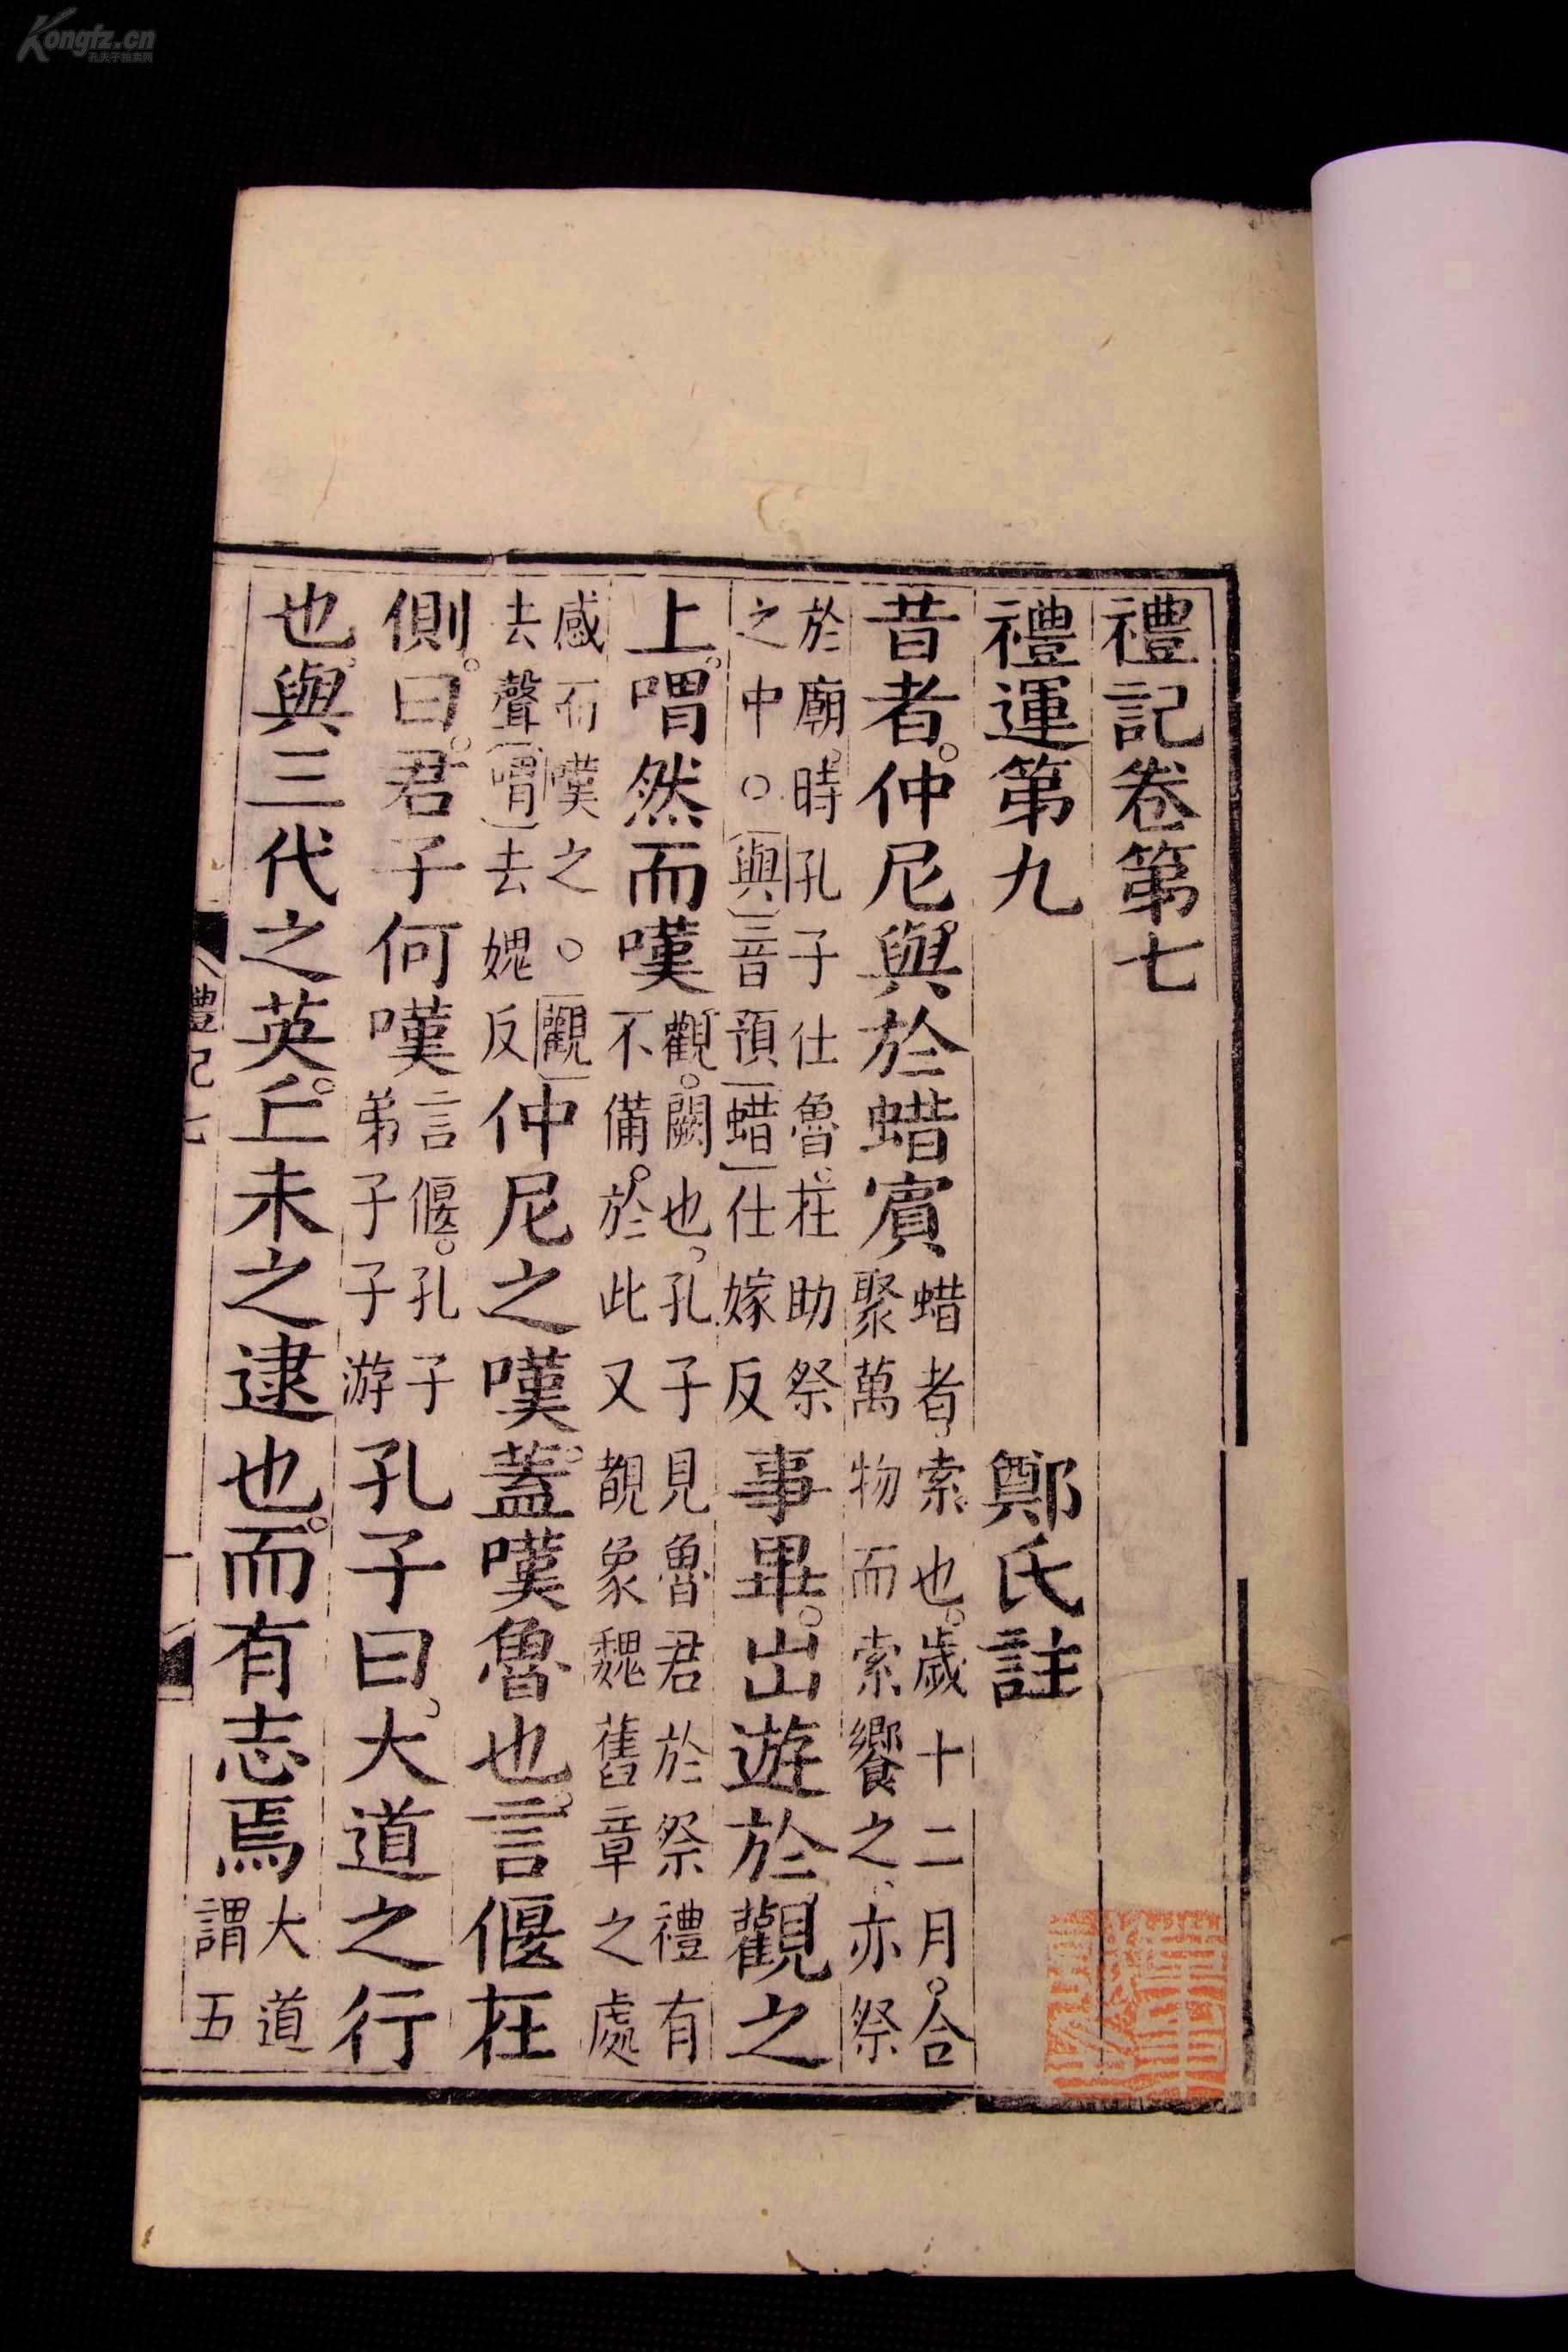 禮記卷第七
禮運第九 鄭氏註
昔者。仲尼與於蜡賓蜡者,索也。歲十二月。合聚萬物而索饗之,亦祭
於廟。時孔子仕魯,在助祭之中○與音預蜡仕嫁反事畢。出遊於觀之
上。喟然而嘆觀。闕也,孔子見魯君於祭禮有不備。於此又覩象魏舊章之處
感而嘆之○觀去聲喟去媿反仲尼之嘆。蓋嘆魯也。言偃在
側。曰。君子何嘆言偃。孔子弟子子游孔子曰,大道之行
也。與三代之英。丘未之逮也。而有志焉大道謂五
禮記七
一
Kongfz.cn
孔夫子拍卖网